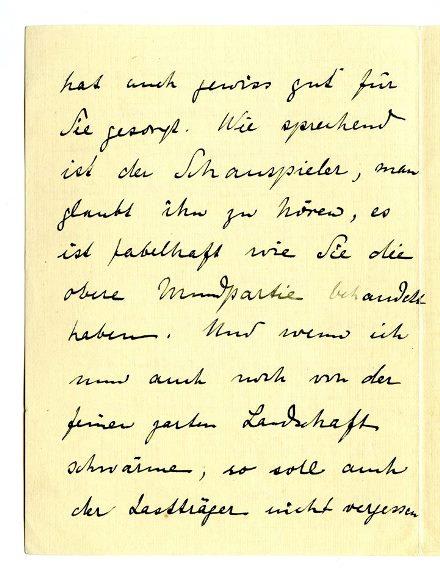 hat auch gewiss gut für
Sie gesorgt. Wie sprechend
ist der Schauspieler, man
glaubt ihn zu hören, es
ist fabelhaft wie Sie die
obere Mundpartie behandelt
haben. Und wenn ich
nun auch noch von der
feinen zarten Landschaft
schwärme, so soll auch
der Lastträger nicht vergessen